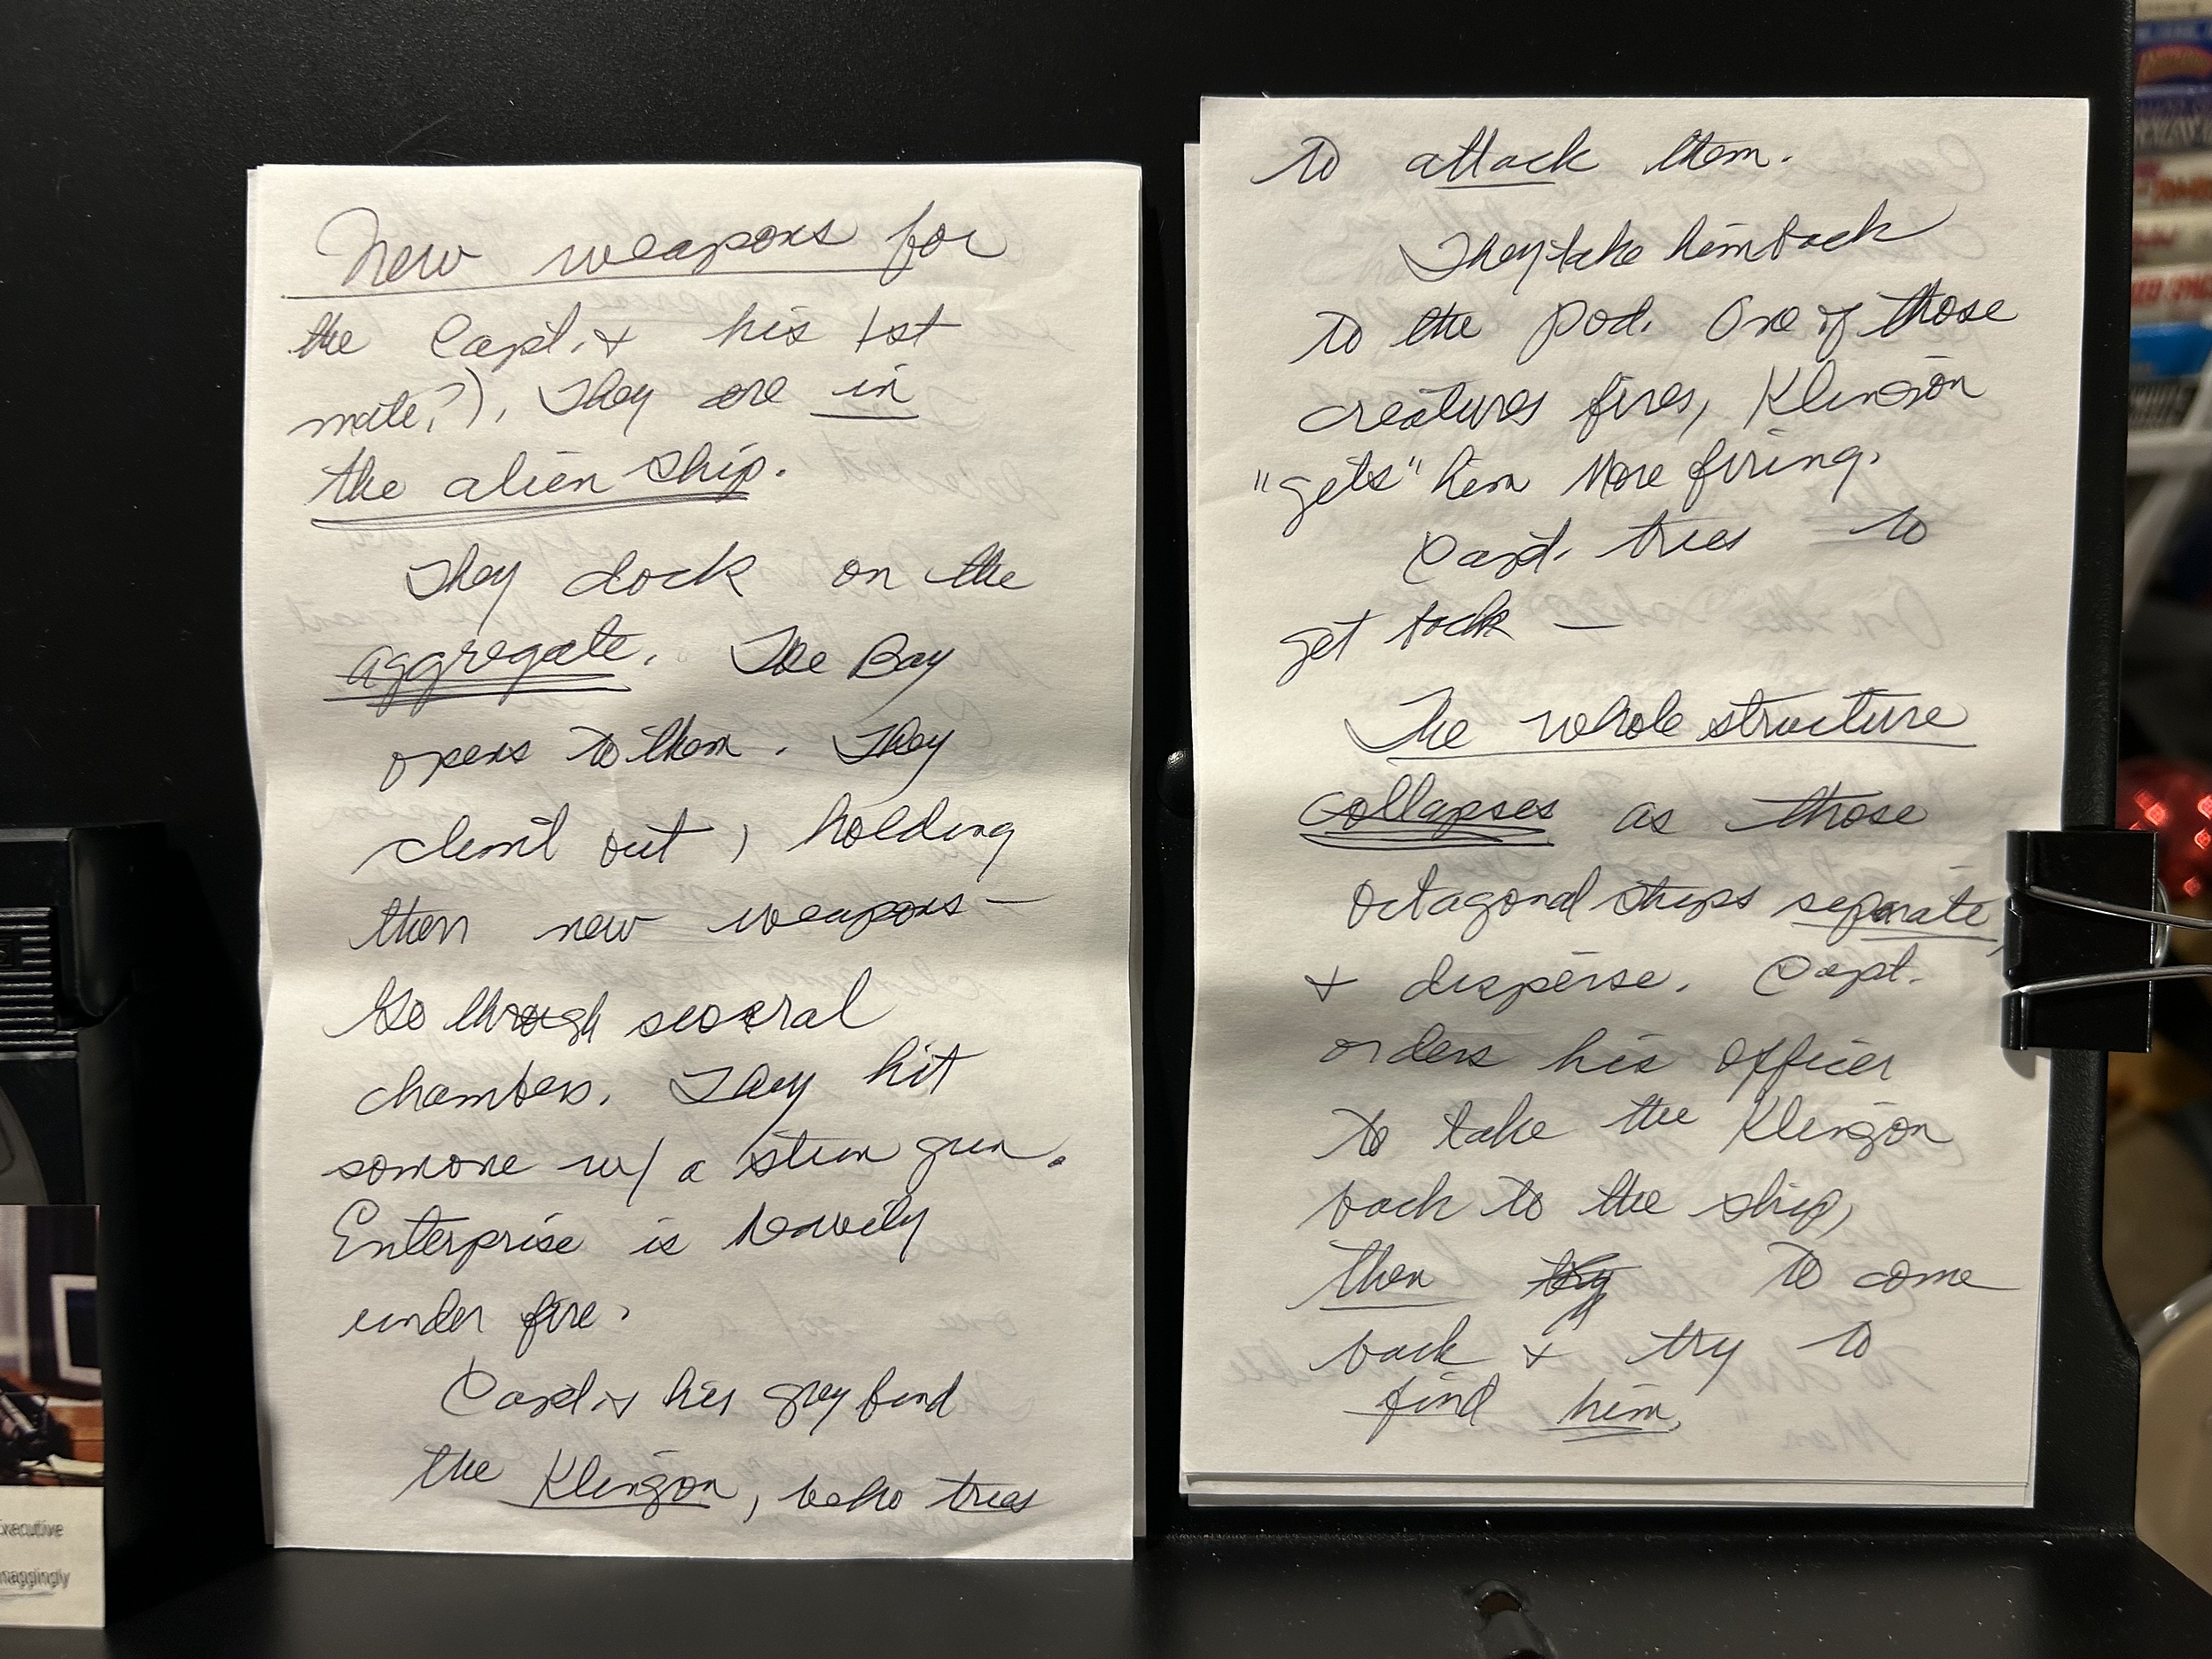 New weapons for
the Capt. & his 1st
mate?). They are in
the alien ship.
They dock on the
aggregate. The Bay
opens to them. They
climb out, holding
their new weapons—
Go through several
chambers. They hit
somone w/ a stun gun.
Enterprise is heavily
under fire.
Capt. & his guy find
the Klingon, who tries
to attack them.
They take him back
to the pod. One of those
creatures fires, Klingon
"gets" him More firing.
Capt. tries to
get back —
The whole structure
collapses as those
octagonal ships separate,
& disperse. Capt.
orders his officer
to take the Klingon
back to the ship,
then to come
back & try to
find him.
Executive
naggingly